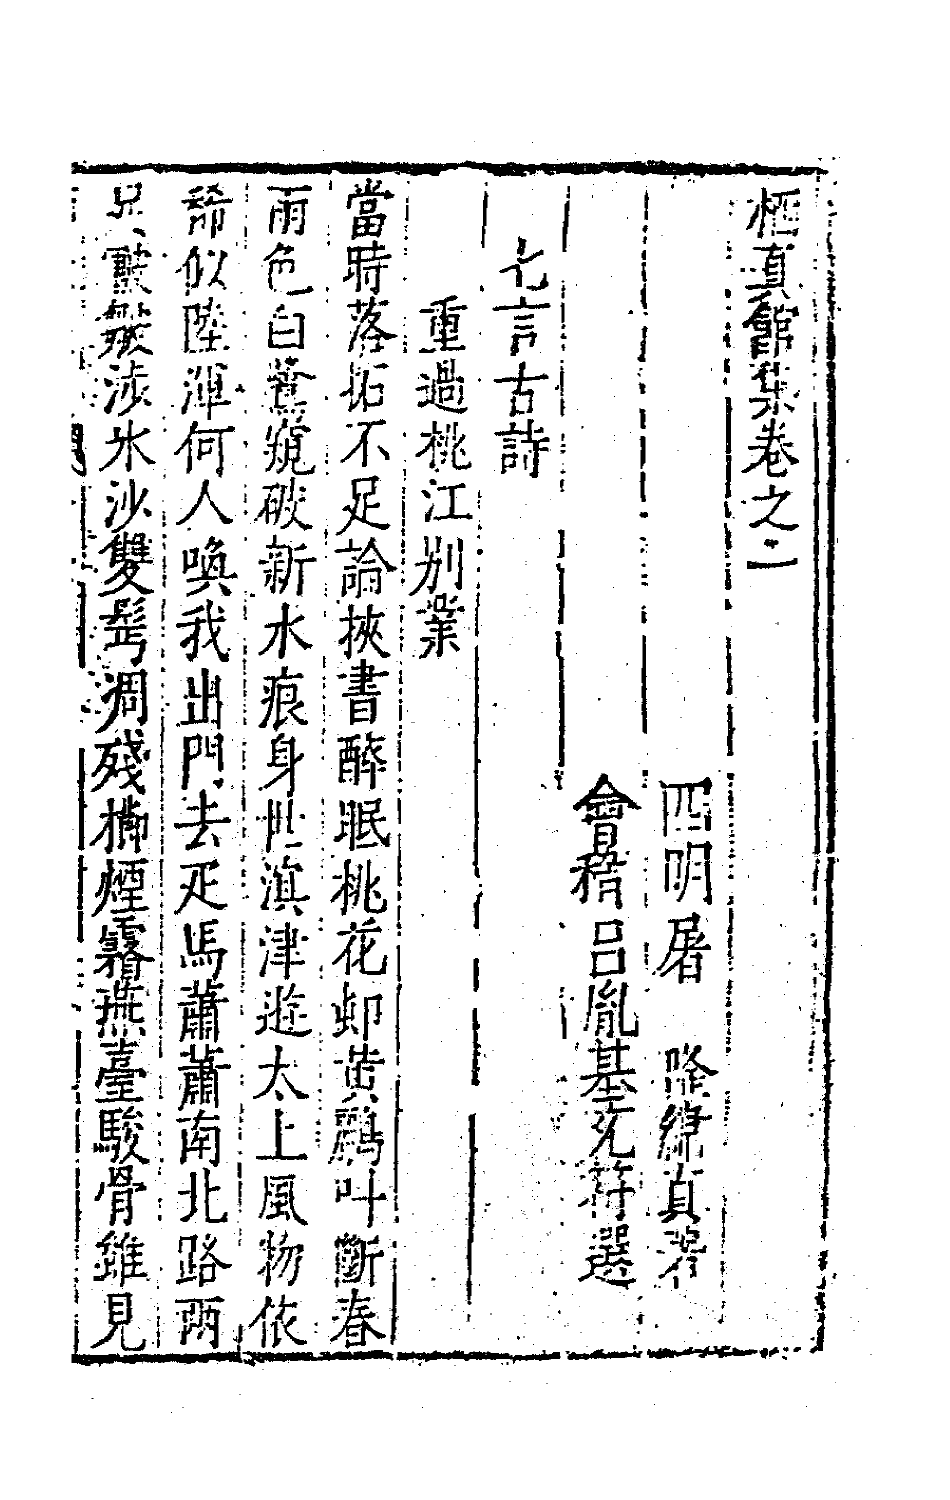 栖真館集卷之二
四明屠　隆緯真著
會稽呂胤基允符選
七言古詩
重過桃江別業
當時落拓不足論挾書醉眠桃花邨黄鸝叶斷春
雨色白鷺窺破新水痕身世滇津遊太上風物依
稀似陸渾何人喚我出門去疋馬蕭蕭南北路兩
足皸皴涉氷沙雙髩凋殘櫛煙霧燕臺駿骨雖見